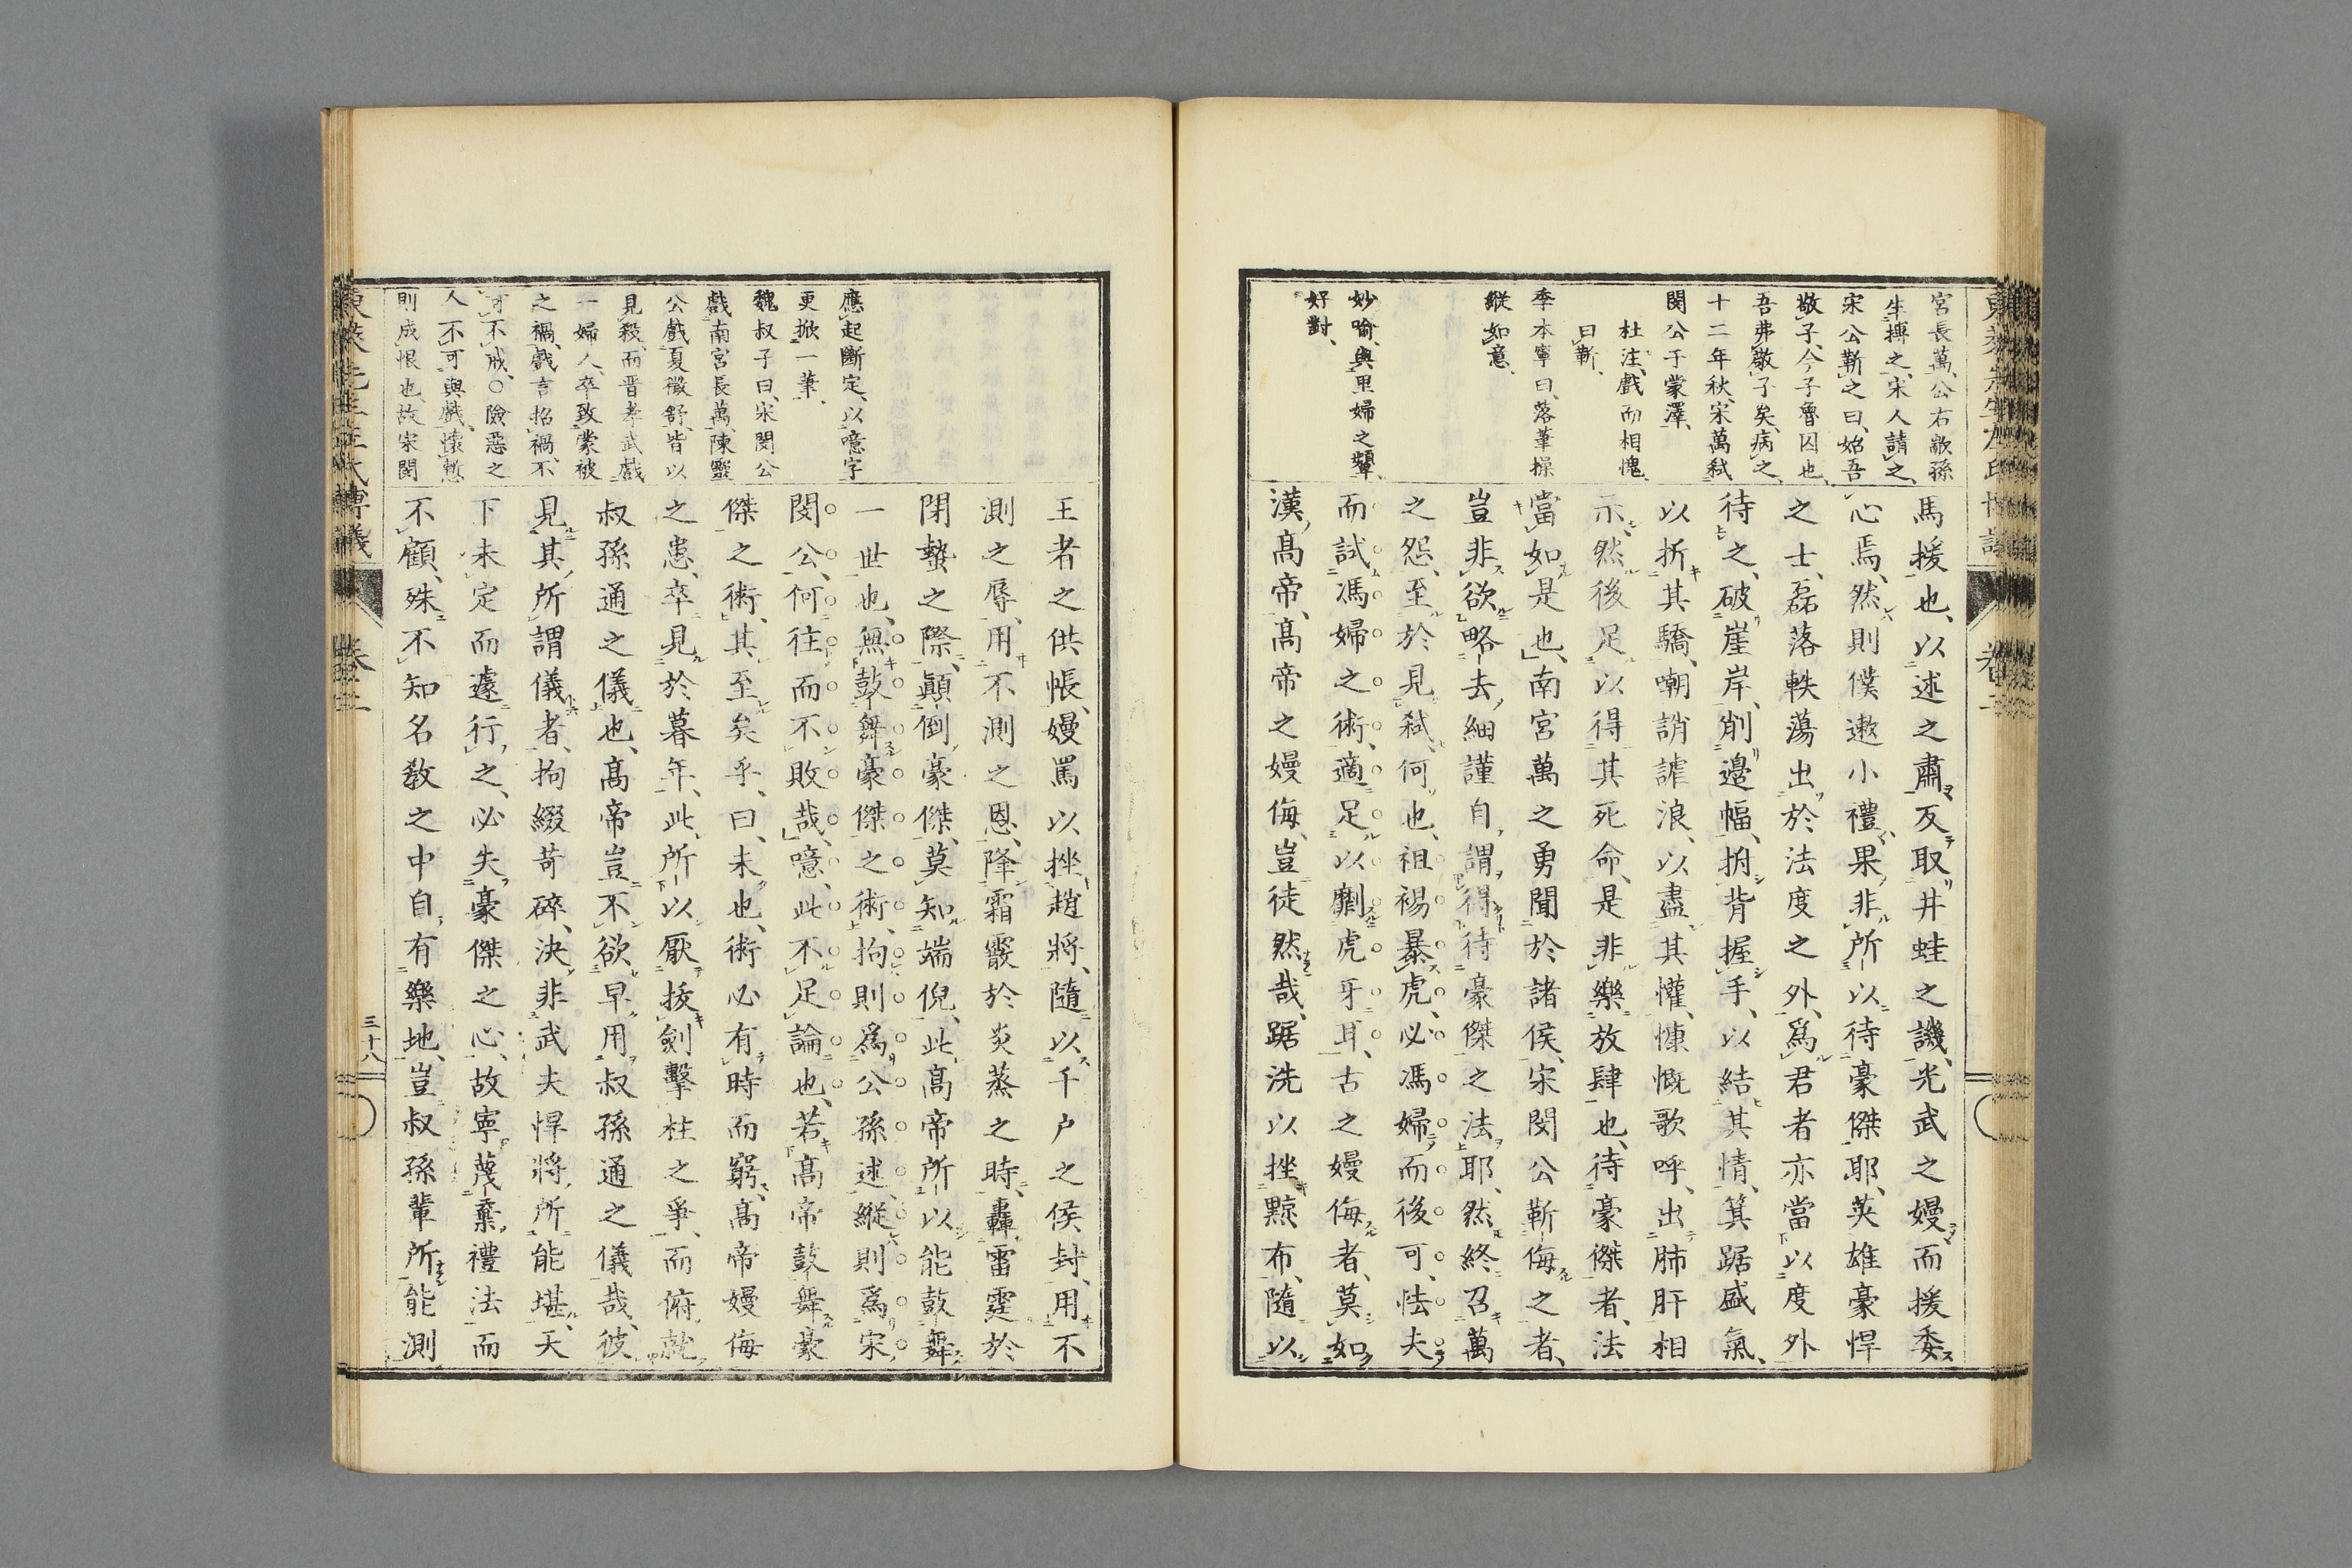 宮長萬、公右歂孫
生搏之、宋人請之、
宋公靳之曰、始吾
敬子、今子魯囚也、
吾弗敬子矣、病之、
十二年秋、宋萬弒
閔公于蒙澤、
杜注、戲而相愧
曰靳、
李本寧曰、落筆操
縱如意、
妙喻、與里婦之顰、
好對、
馬援也、以述之肅、反取井蛙之譏、光武之嫚、而援委
心焉、然則僕遬小禮、果非所以待豪傑耶、英雄豪悍
之士、磊落軼蕩、出於法度之外、爲君者亦當以度外
待之、破崖岸、削邊幅、拊背握手、以結其情、箕踞盛氣、
以折其驕、嘲誚謔浪、以盡其懽、慷慨歌呼、出肺肝相
示、然後足以得其死命、是非樂放肆也、待豪傑者、法
當如是也、南宮萬之勇聞於諸侯、宋閔公靳侮之者、
豈非欲略去細謹、自謂得待豪傑之法耶、然終召萬
之怨、至於見弒、何也、袒裼暴虎、必馮婦而後可、怯夫
而試馮婦之術、適足以劘虎牙耳、古之嫚侮者、莫如
漢高帝、高帝之嫚侮、豈徒然哉、踞洗以挫黥布、隨以
王者之供帳、嫚罵以挫趙將、隨以千戶之侯封、用不
測之辱、用不測之恩、降霜霰於炎蒸之時、轟雷霆於
閉蟄之際、顚倒豪傑、莫知端倪、此高帝所以能鼓舞
一世也、無鼓舞豪傑之術、拘則爲公孫述、縱則爲宋
閔公、何往而不敗哉、噫、此不足論也、若高帝鼓舞豪
傑之術、其至矣乎、曰、未也、術必有時而窮、高帝嫚侮
之患、卒見於暮年、此所以厭拔劍擊柱之爭、而俯就
叔孫通之儀也、高帝豈不欲早用叔孫通之儀哉、彼
見其所謂儀者、拘綴苛碎、決非武夫悍將所能堪、天
下未定而遽行之、必失豪傑之心、故寧蔑棄禮法而
不顧、殊不知名敎之中自有樂地、豈叔孫輩所能測
應起斷定、以噫字
更掀一筆、
魏叔子曰、宋閔公
戲南宮長萬、陳靈
公戲夏徵舒、皆以
見殺、而晉孝武戲
一婦人、卒致蒙被
之禍、戲言招禍、不
可不戒、○險惡之
人、不可與戲、懷慙
則成恨也、故宋閔
三十八